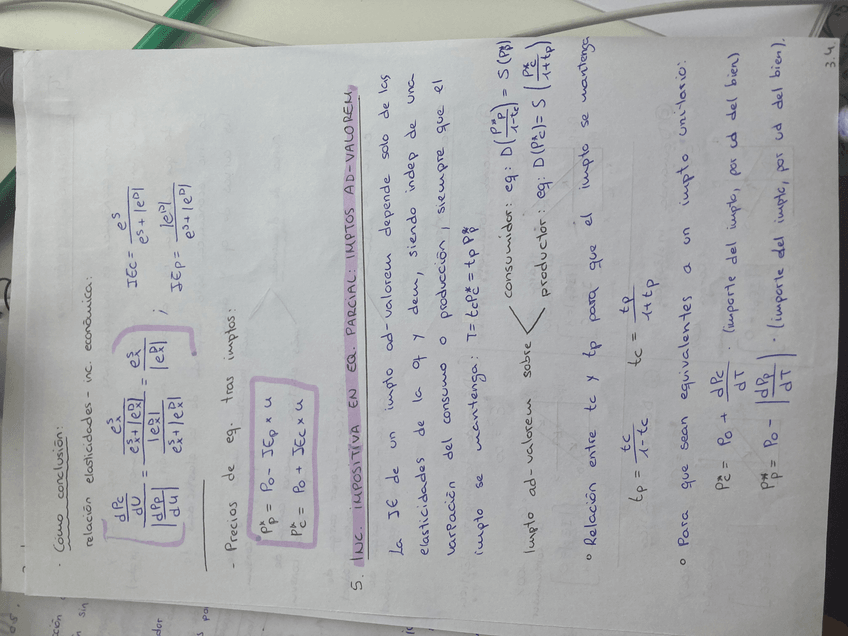 · Como conclusión:
relación elasticidades - inc. económica:
dPc/dU / |dPp/dU| = (eˢₓ / (eˢₓ + |eᴰₓ|)) / (|eᴰₓ| / (eˢₓ + |eᴰₓ|)) = eˢₓ / |eᴰₓ| ; IEc = eˢ / (eˢ + |eᴰ|)
IEp = |eᴰ| / (eˢ + |eᴰ|)
- Precios de eq. tras imptos:
P*p = P0 - IEp × u
P*c = P0 + IEc × u
5. INC. IMPOSITIVA EN EQ. PARCIAL: IMPTOS AD-VALOREM
La IE de un impto ad-valorem depende solo de las
elasticidades de la of y dem, siendo indep de una
variación del consumo o producción, siempre que el
impto se mantenga: T = tc P*c = tp P*p
Impto ad-valorem sobre < consumidor: eq: D(P*p / (1-tc)) = S(P*p)
productor: eq: D(P*c) = S(P*c / (1+tp))
• Relación entre tc y tp para que el impto se mantenga
tp = tc / (1-tc) tc = tp / (1+tp)
• Para que sean equivalentes a un impto unitario:
P*c = P0 + dPc/dT · (importe del impto, por ud del bien)
P*p = P0 - |dPp/dT| · (importe del impto, por ud del bien).
3.4